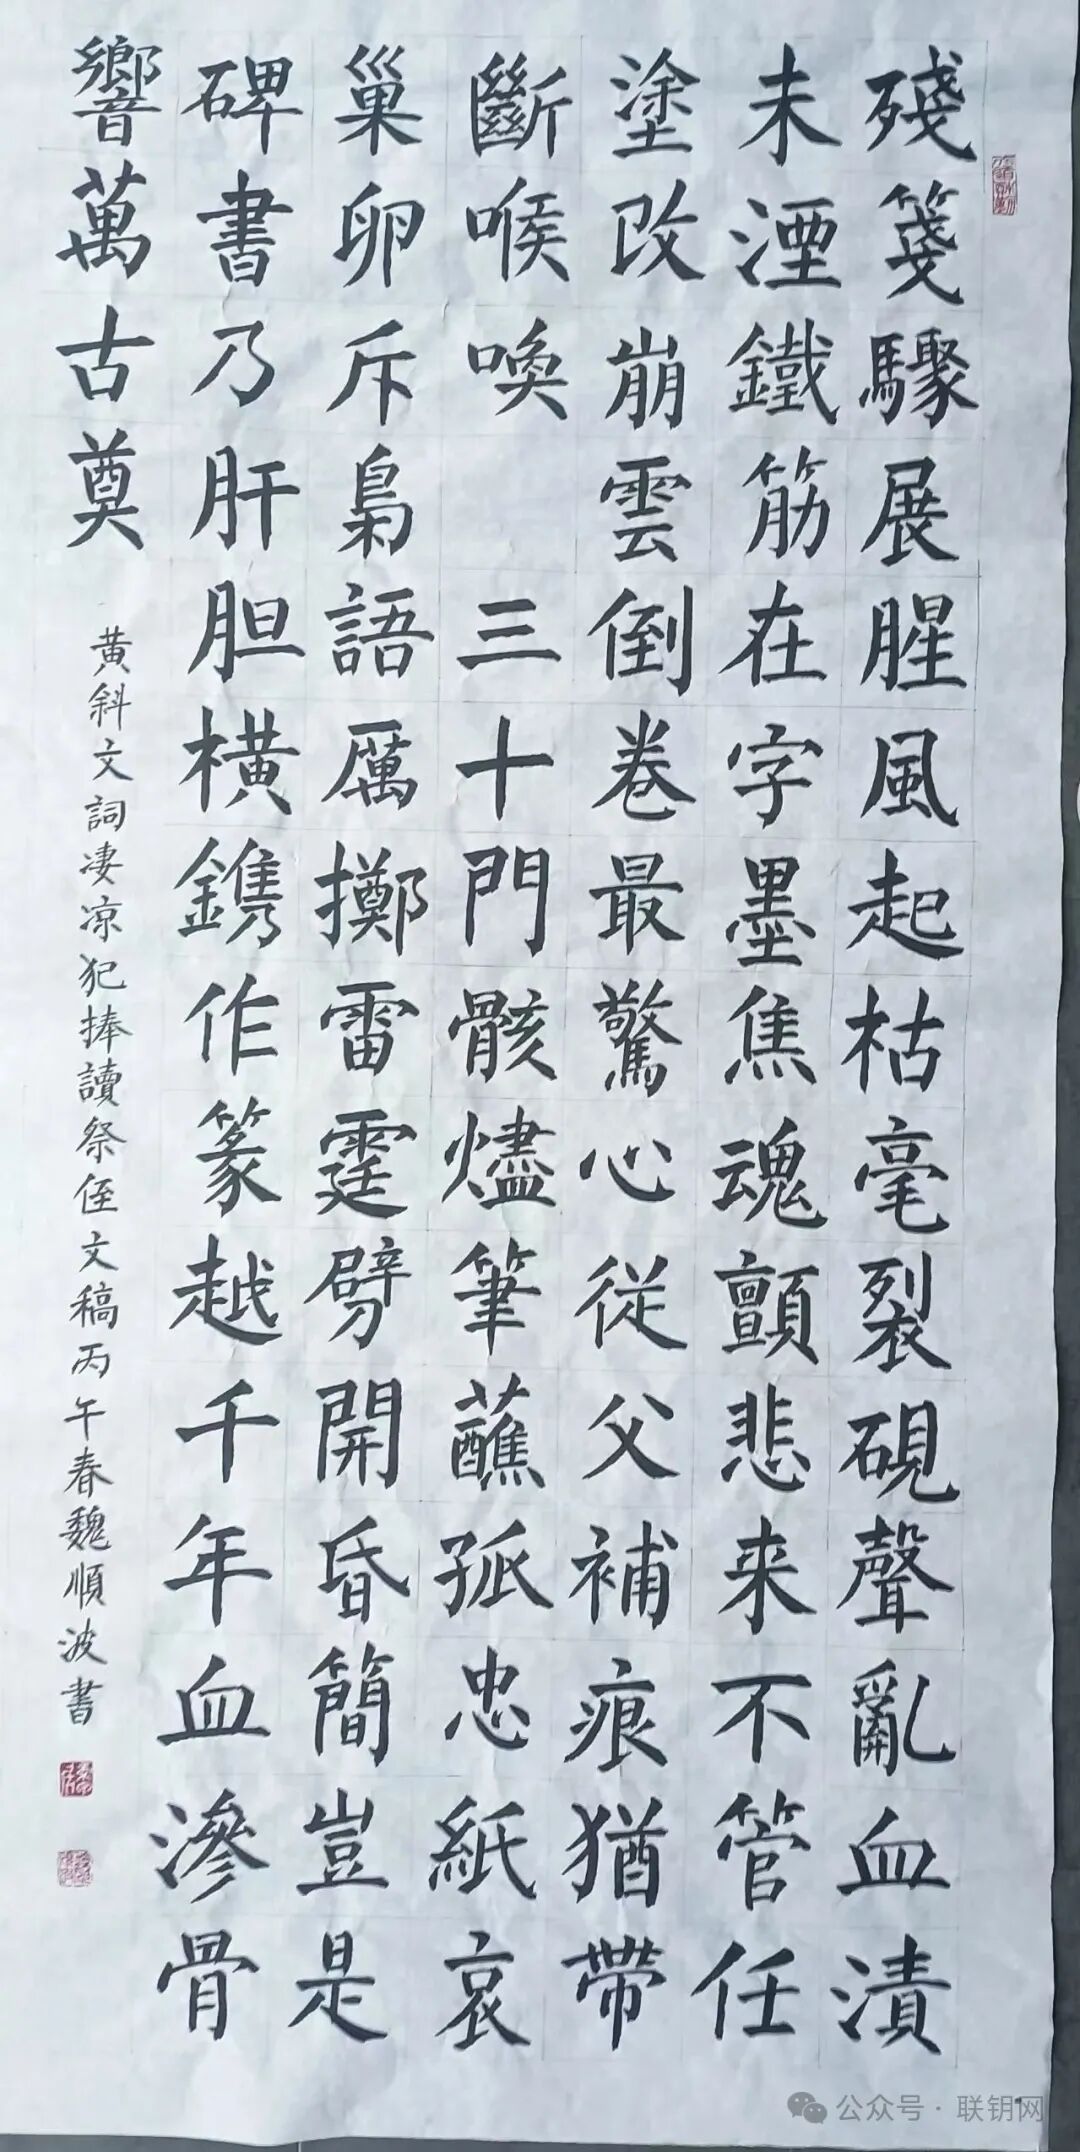 殘箋驟展腥風起枯毫裂硯聲亂血漬
未湮鐵筋在字墨焦魂顫悲来不管任
塗改崩雲倒卷最驚心從父補痕猶帶
斷喉喚三十門骸燼筆蘸孤忠紙哀
巢卵斥梟語厲擲雷霆劈開昏簡豈是
碑書乃肝胆橫鐫作篆越千年血滲骨
響萬古奠
黃斜文詞淒凉犯捧讀祭侄文稿丙午春魏順波書
公众号·联钥网